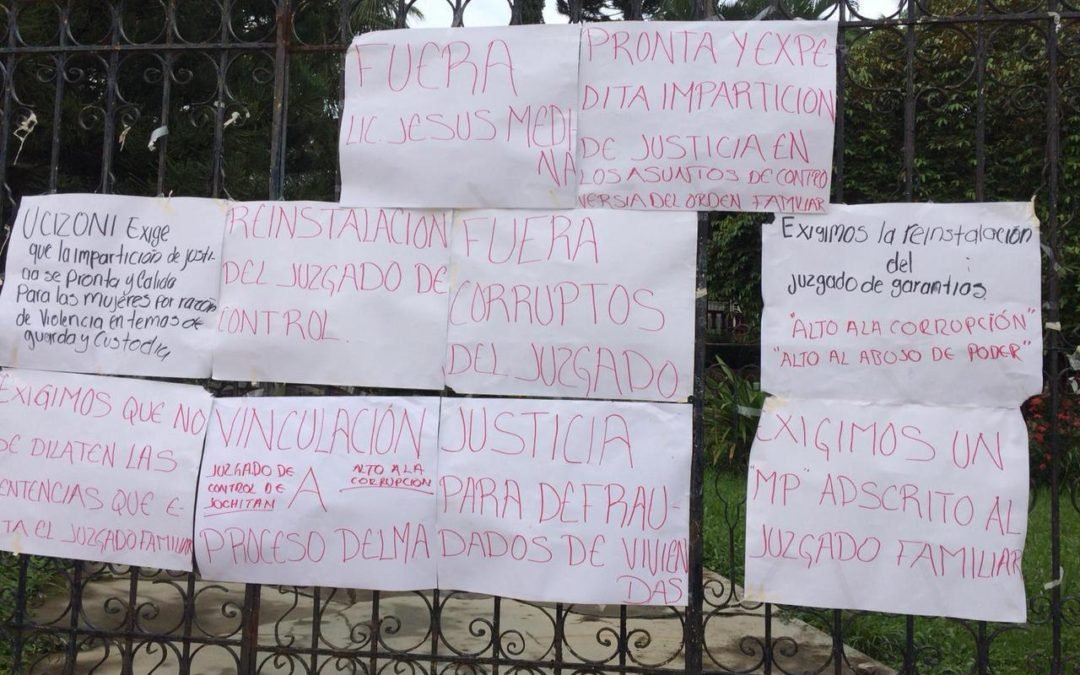 FUERA
LIC. JESUS MEDI
NA
PRONTA Y EXPE
DITA IMPARTICION
DE JUSTICIA EN
LOS ASUNTOS DE CONTRO
VERSIA DEL ORDEN FAMILIAR
UCIZONI Exige
que la impartición de justi
cia se pronta y Calida
Para las mujeres por razón
de Violencia en temas de
guarda y Custodia
REINSTALACION
DEL JUZGADO DE
CONTROL.
FUERA
CORRUPTOS
DEL JUZGADO
Exigimos la reinstalación
del
Juzgado de garantías
"ALTO A LA CORRUPCIÓN"
"ALTO AL ABUSO DE PODER"
EXIGIMOS QUE NO
SE DILATEN LAS
SENTENCIAS QUE E-
TA EL JUZGADO FAMILIAR
VINCULACIÓN
JUZGADO DE
CONTROL DE
JUCHITAN
A
ALTO A LA
CORRUPCIÓN
PROCESO DEL MA
JUSTICIA
PARA DEFRAU-
DADOS DE VIVIEN
DAS
EXIGIMOS UN
"MP" ADSCRITO AL
JUZGADO FAMILIAR